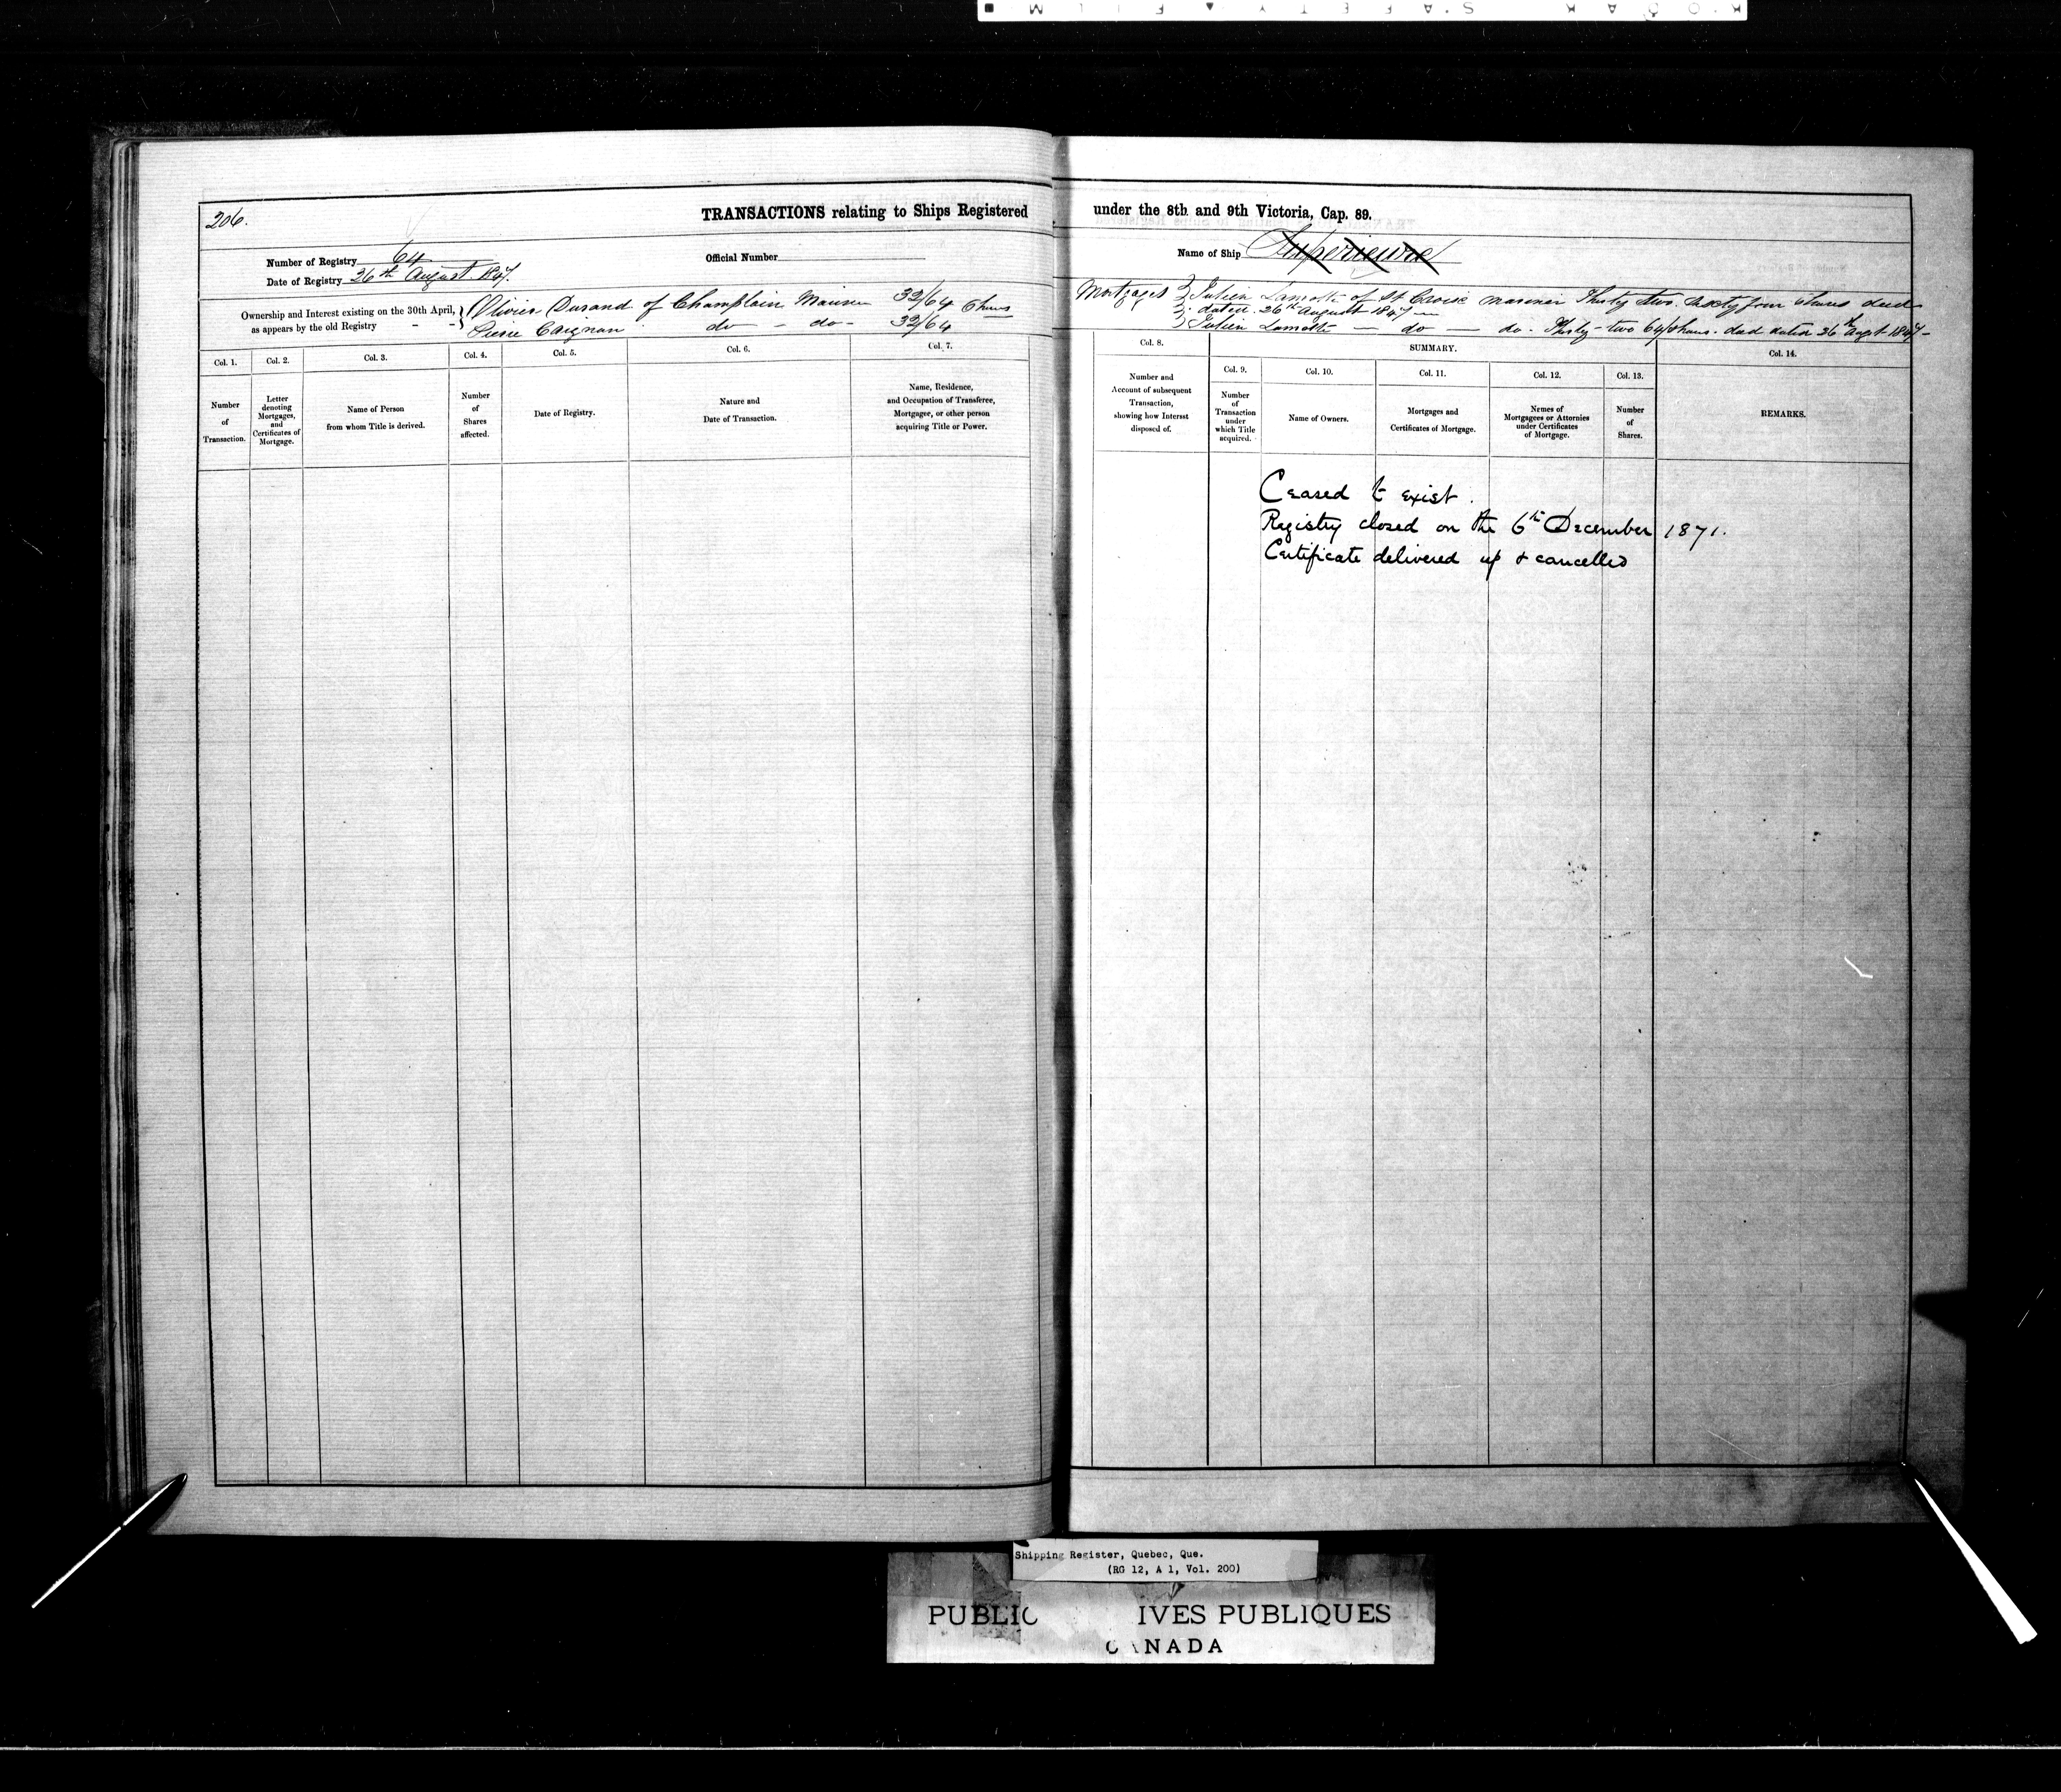 206.
TRANSACTIONS relating to Ships Registered under the 8th and 9th Victoria, Cap. 89.
Number of Registry 64
Official Number
Name of Ship
Date of Registry 26th August 1847.
Ownership and Interest existing on the 30th April,
as appears by the old Registry - -
Olivier Durand of Champlain Mariner 32/64 Shares
Pierre Carignan do - do - 32/64
Mortgages Julien Lamotte of St Croix mariner Thirty two Sixty four Shares deed
dated 26th August 1847 —
Julien Lamotte — do — do - Thirty-two 64/Shares. deed dated 26th Augt 1847 -
Col. 1.
Number
of
Transaction.
Col. 2.
Letter
denoting
Mortgages,
and
Certificates of
Mortgage.
Col. 3.
Name of Person
from whom Title is derived.
Col. 4.
Number
of
Shares
affected.
Col. 5.
Date of Registry.
Col. 6.
Nature and
Date of Transaction.
Col. 7.
Name, Residence,
and Occupation of Transferee,
Mortgagee, or other person
acquiring Title or Power.
Col. 8.
Number and
Account of subsequent
Transaction,
showing how Interest
disposed of.
SUMMARY.
Col. 9.
Number
of
Transaction
under
which Title
acquired.
Col. 10.
Name of Owners.
Col. 11.
Mortgages and
Certificates of Mortgage.
Col. 12.
Names of
Mortgagees or Attornies
under Certificates
of Mortgage.
Col. 13.
Number
of
Shares.
Col. 14.
REMARKS.
Ceased to exist.
Registry closed on the 6th December 1871.
Certificate delivered up & cancelled
Shipping Register, Quebec, Que.
(RG 12, A 1, Vol. 200)
PUBLIC IVES PUBLIQUES
CANADA